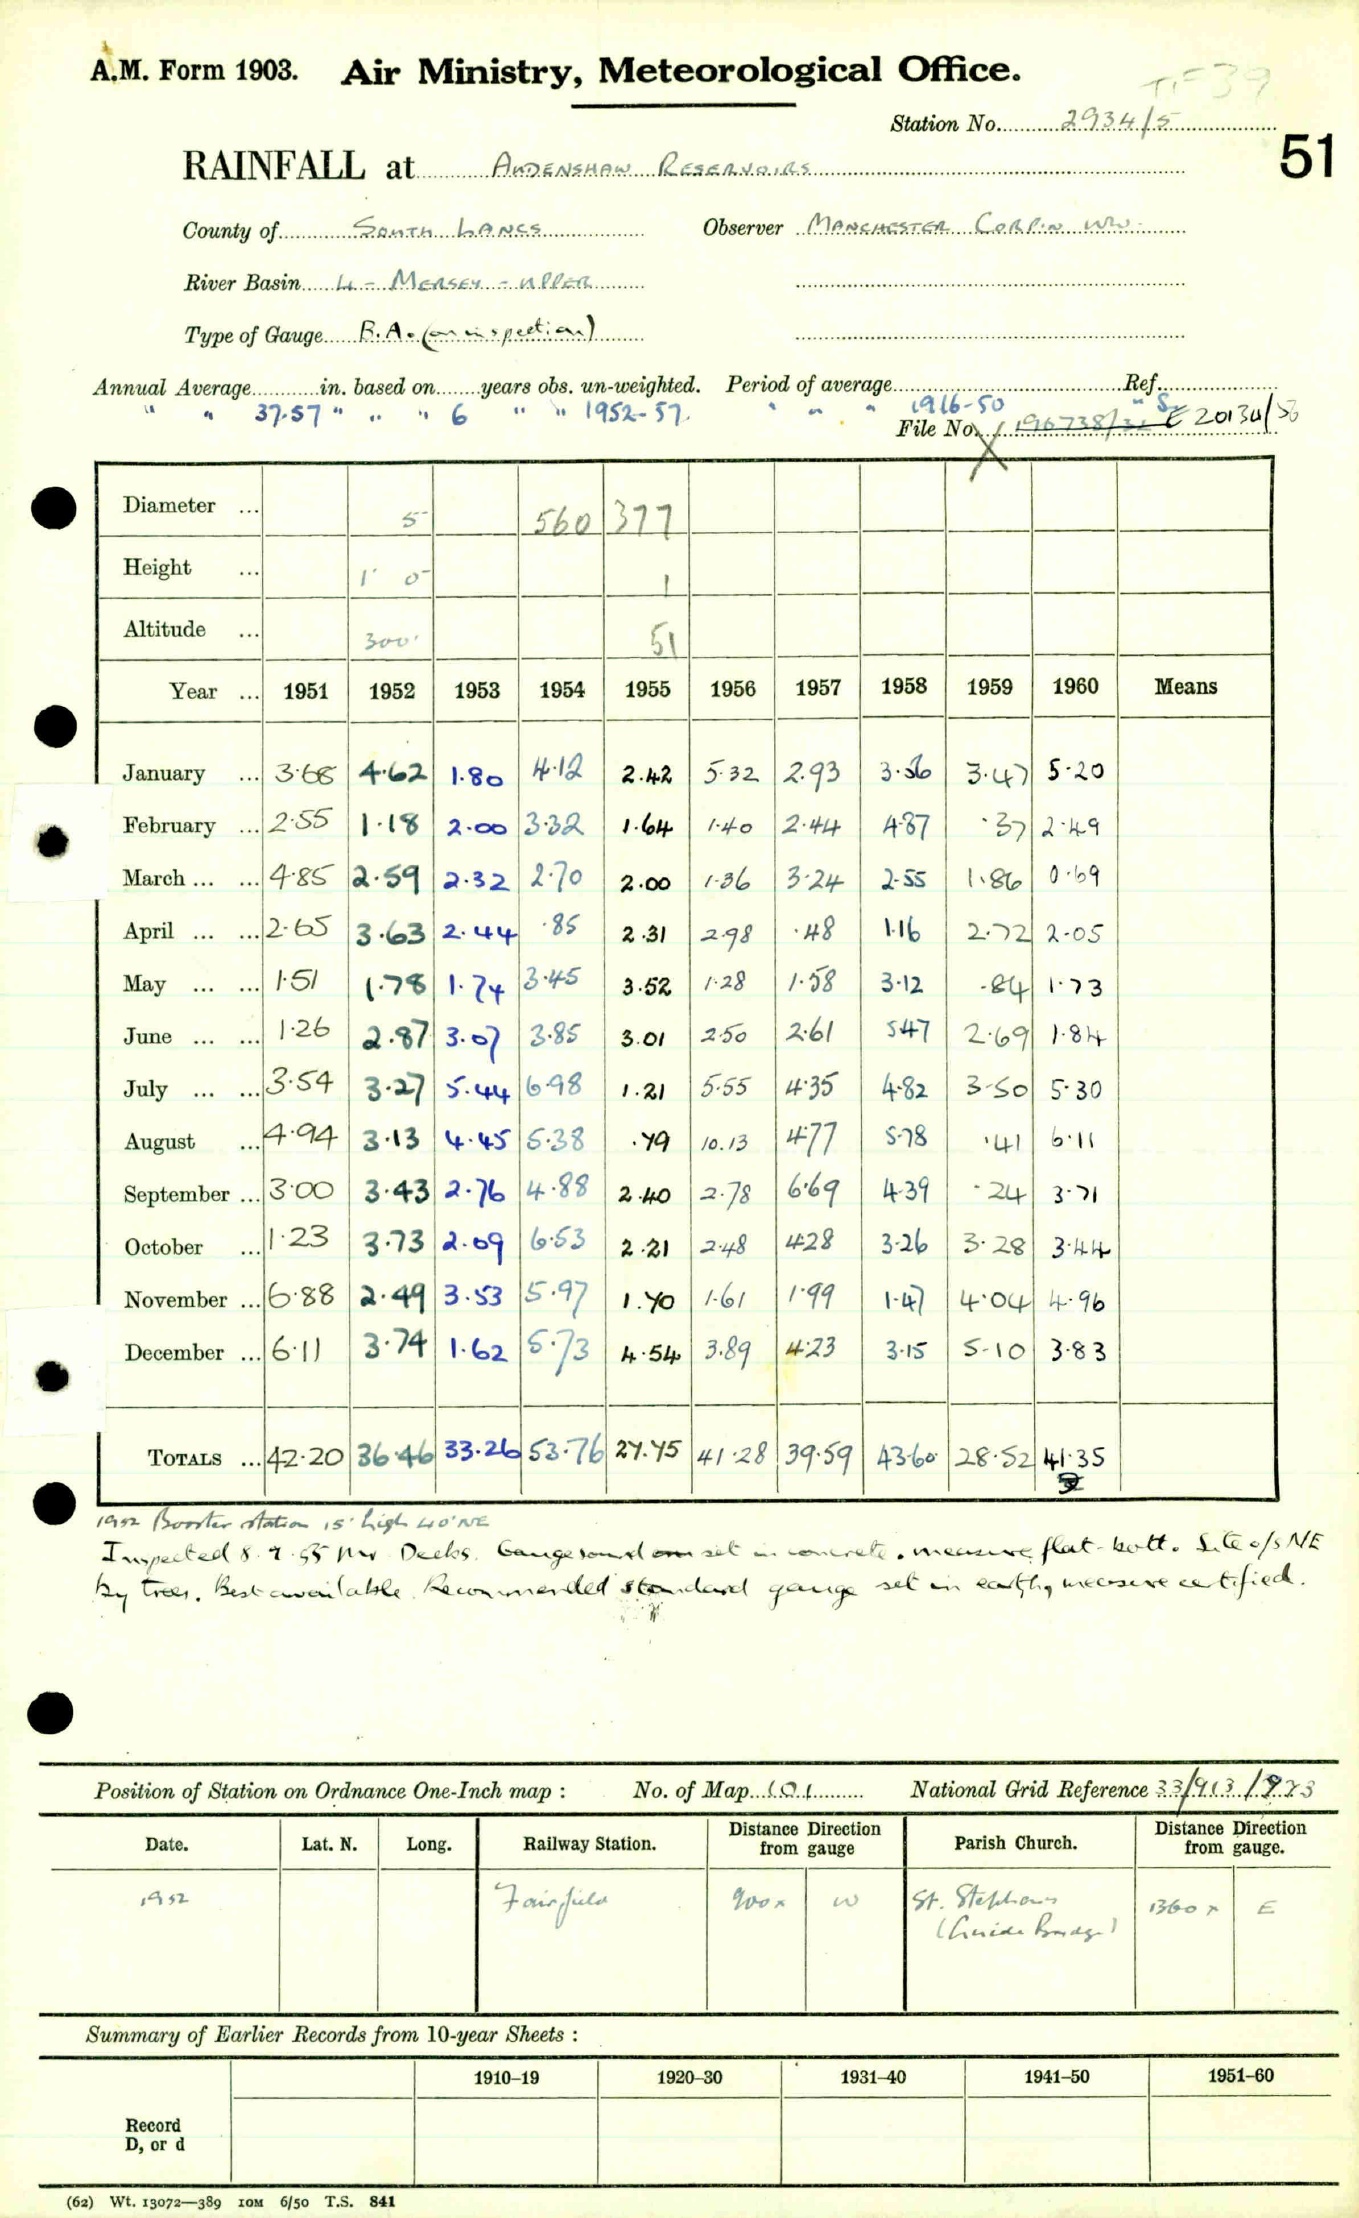 A.M. Form 1903. Air Ministry, Meteorological Office.
Station No. 2934/5
51
RAINFALL at AUDENSHAW RESERVOIRS
County of SOUTH LANCS Observer MANCHESTER CORP'N WW.
River Basin 4 - MERSEY - UPPER
Type of Gauge B.A. (on inspection)
Annual Average in. based on years obs. un-weighted. Period of average Ref.
" " 37.57 " " " 6 " " 1952-57. " " " 1916-50 "
File No. 196738/32 E 20134/56
Diameter ... 5 560 377
Height ... 1' 0 1
Altitude ... 300' 51
Year ... 1951 1952 1953 1954 1955 1956 1957 1958 1959 1960 Means
January ... 3.68 4.62 1.80 4.12 2.42 5.32 2.93 3.56 3.47 5.20
February ... 2.55 1.18 2.00 3.32 1.64 1.40 2.44 4.87 .37 2.49
March ... ... 4.85 2.59 2.32 2.70 2.00 1.36 3.24 2.55 1.86 0.69
April ... ... 2.65 3.63 2.44 .85 2.31 2.98 .48 1.16 2.72 2.05
May ... ... 1.51 1.78 1.74 3.45 3.52 1.28 1.58 3.12 .84 1.73
June ... ... 1.26 2.87 3.07 3.85 3.01 2.50 2.61 5.47 2.69 1.84
July ... ... 3.54 3.27 5.44 6.98 1.21 5.55 4.35 4.82 3.50 5.30
August ... 4.94 3.13 4.45 5.38 .79 10.13 4.77 5.78 .41 6.11
September ... 3.00 3.43 2.76 4.88 2.40 2.78 6.69 4.39 .24 3.71
October ... 1.23 3.73 2.09 6.53 2.21 2.48 4.28 3.26 3.28 3.44
November ... 6.88 2.49 3.53 5.97 1.70 1.61 1.99 1.47 4.04 4.96
December ... 6.11 3.74 1.62 5.73 4.54 3.89 4.23 3.15 5.10 3.83
TOTALS ... 42.20 36.46 33.26 53.76 27.75 41.28 39.59 43.60 28.52 41.35
1952 Booster station 15' high 40' NE
Inspected 8.9.55 Mr Decks. Gauge sound set in concrete. measure flat-bott. Site o/s NE
by trees. Best available. Recommended standard gauge set in earth, measure certified.
Position of Station on Ordnance One-Inch map : No. of Map 101 National Grid Reference 33/913/973
Date. Lat. N. Long. Railway Station. Distance from Direction gauge Parish Church. Distance Direction from gauge.
1952 Fairfield 900x W St. Stephens 1360x E
(Guide Bridge)
Summary of Earlier Records from 10-year Sheets :
1910–19 1920–30 1931–40 1941–50 1951–60
Record
D, or d
(62) Wt. 13072—389 10M 6/50 T.S. 841